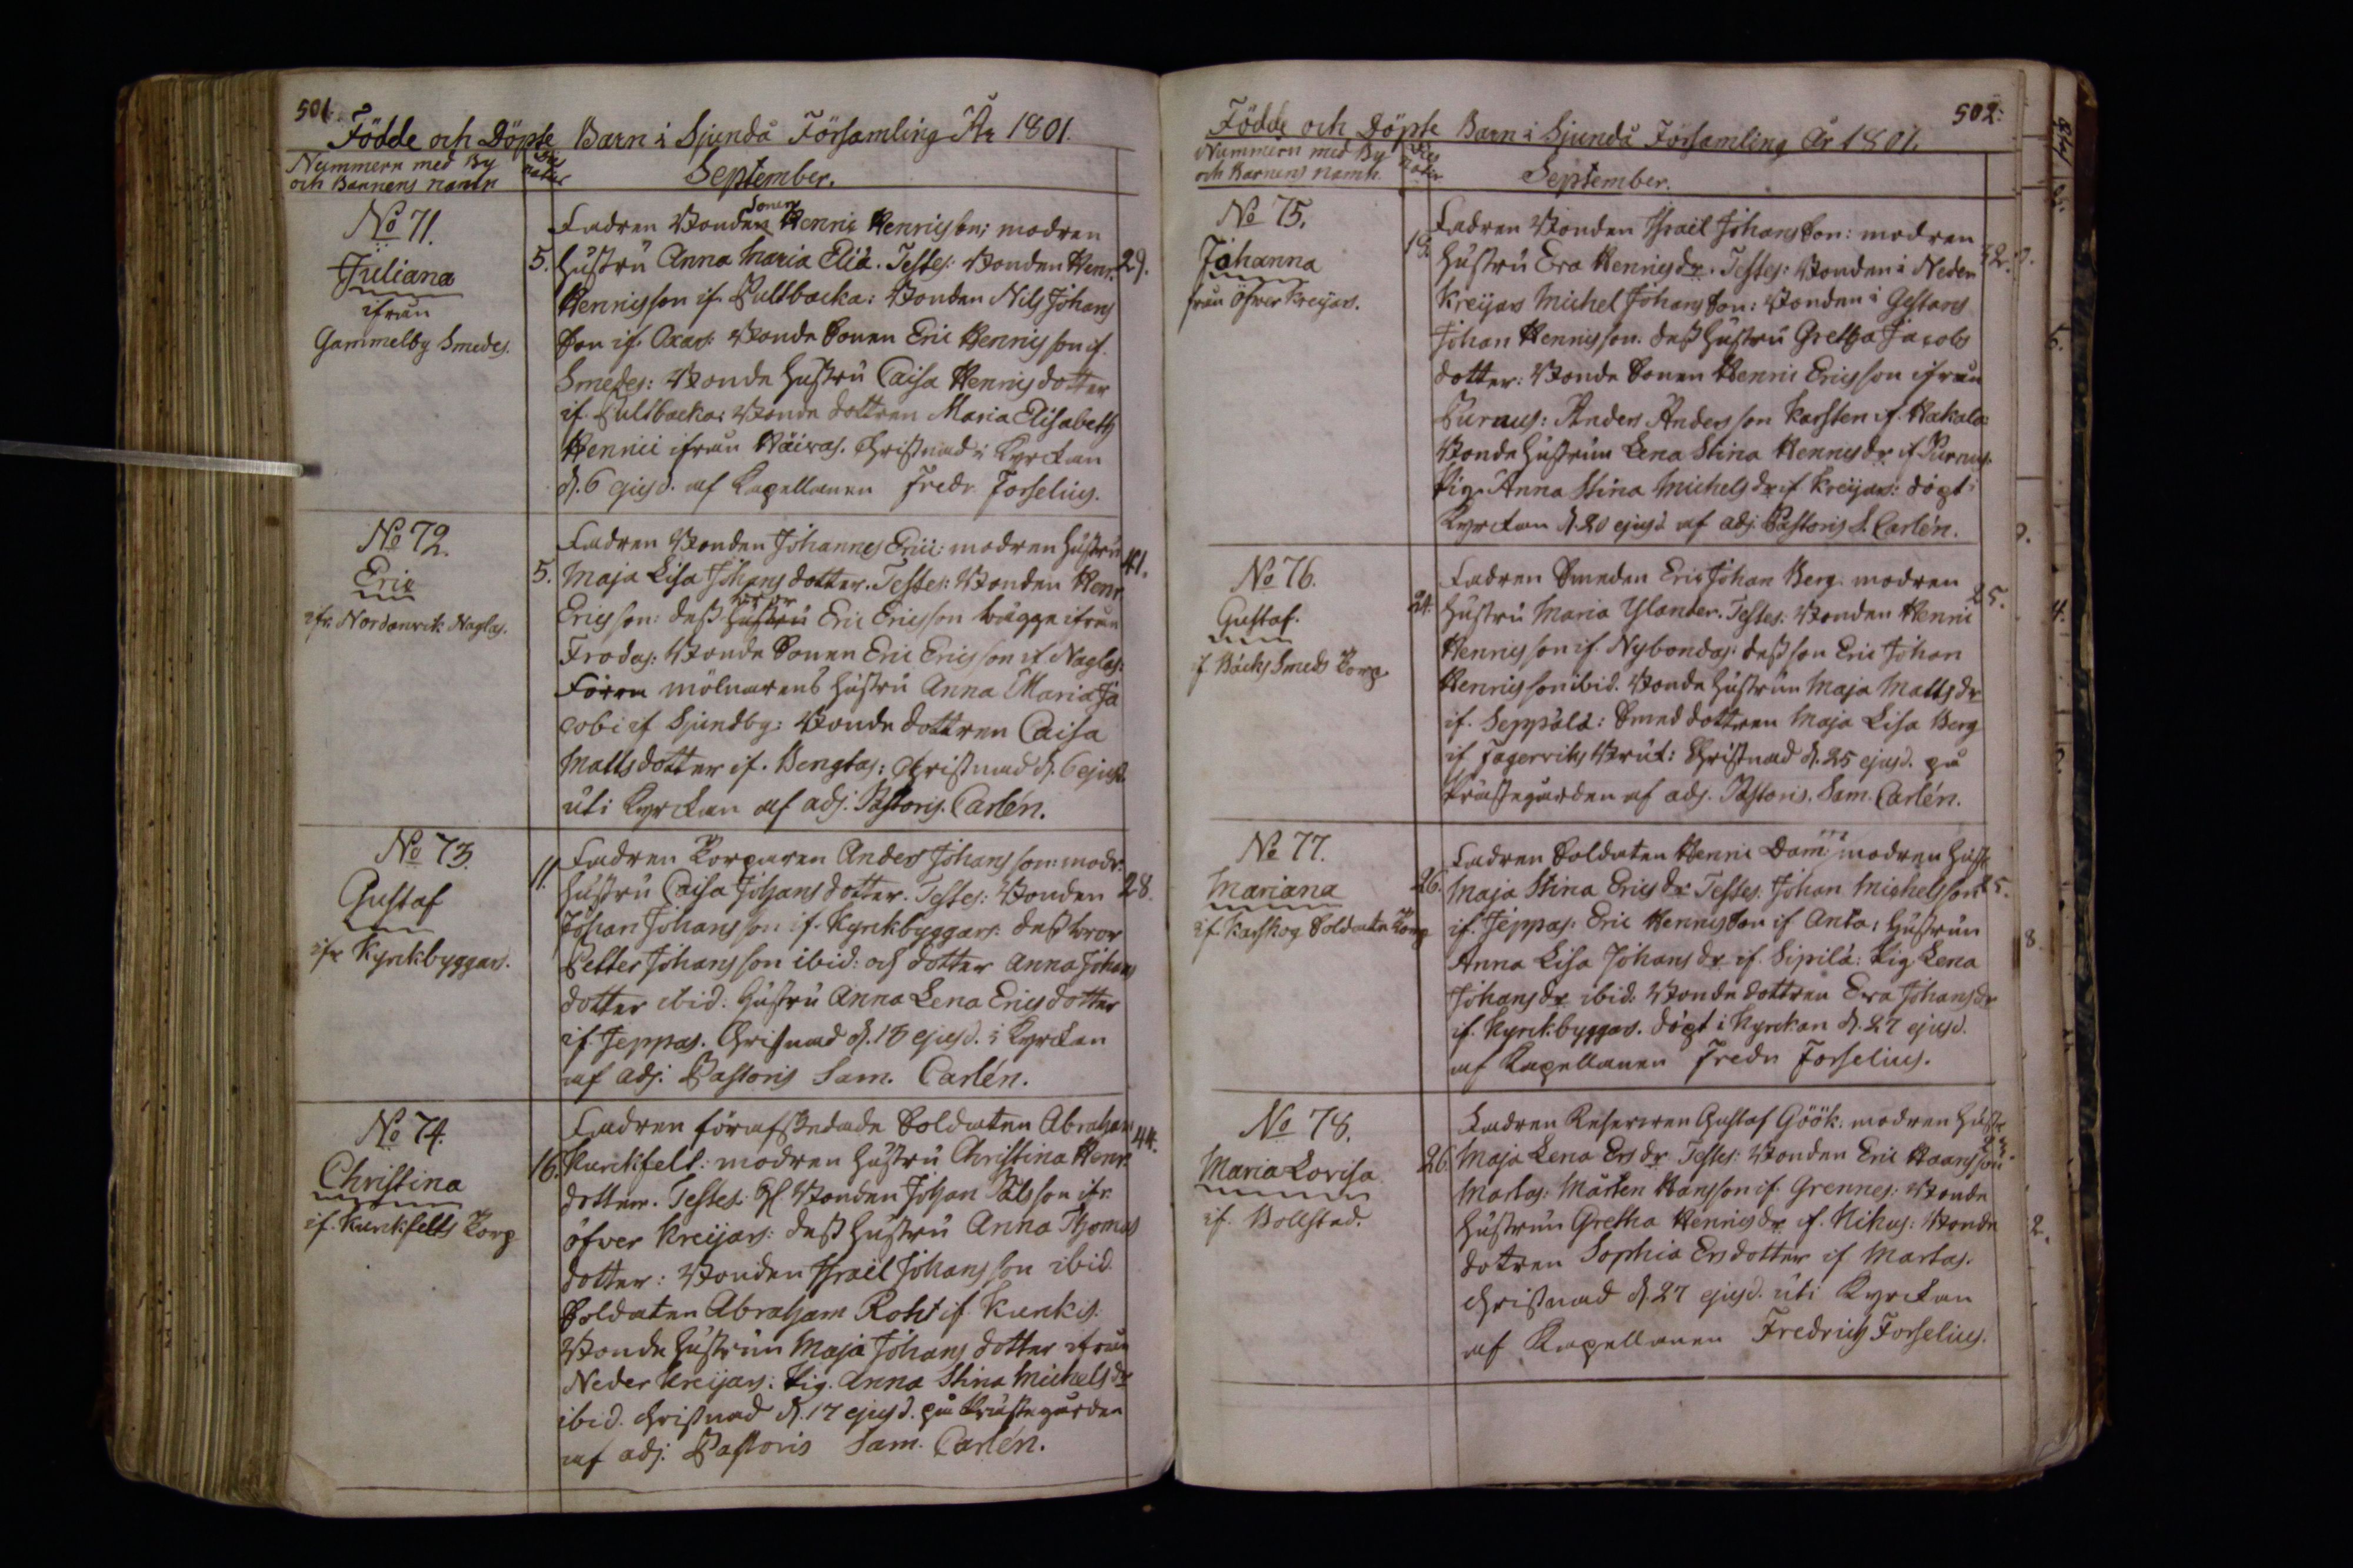 501.
Födde och Döpte Barn i Sjundå Församling År 1801.
Nummern med By och Barnens namn
Dies nativ
September.
No 71.
Juliana
ifrån
Gammelby Smedes.
5.
29.
Fadren Bonden Sonen Henric Henricsson; modren
Hustru Anna Maria Eliæ. Testes: Bonden Henr.
Henricsson if. Pultbacka: Bonden Nils Johans
Son if. Oxars: Bonde Sonen Eric Henricsson if.
Smedes: Bonde Hustru Caisa Henricsdotter
if. Pultbacka: Bonde dottren Maria Elisabeth
Henrici ifrån Väiras. Christnad i Kyrckan
d. 6 ejusd. af Kapellanen Fredr. Forselius.
No 72.
Eric
ifr. Nordanvik Naglas.
5.
41.
Fadren Bonden Johannes Erici: modren Hustru
Maja Lisa Johansdotter. Testes: Bonden Henr.
Ericsson: dess Hustru bror Eric Ericsson bägge ifrån
Frodas: Bonde Sonen Eric Ericsson if. Naglas:
Förra mölnarens Hustru Anna Maria Ja
cobi if Sjundby: Bonde dottren Caisa
Mattsdotter if. Bengtas: Christnad d. 6 ejusd.
uti Kyrckan af adj. Pastoris. Carlén.
No 73.
Gustaf
ifr Kyrckbyggars.
11.
28.
Fadren Torparen Anders Johansson: modr.
Hustru Caisa Johansdotter. Testes: Bonden
Johan Johansson if. Kyrckbyggars: dess bror
Petter Johansson ibid: och dotter Anna Johans
dotter ibid. Hustru Anna Lena Ericsdotter
if. Jeppas. Christnad d. 13 ejusd. i Kyrckan
af adj. Pastoris Sam. Carlén.
No 74.
Christina
if. Kurckfelts Torp
16.
44.
Fadren förafskedade Soldaten Abraham
Kurckfelt: modren Hustru Christina Henr.
dotter. Testes: Gl Bonden Johan Pålsson ifr.
öfver Kreijars: dess Hustru Anna Thomas
dotter: Bonden Israël Johansson ibid.
Soldaten Abraham Roht if. Kunkis:
Bonde Hustrun Maja Johans dotter ifrån
Neder Kreijars: Pig. Anna Stina Michelsdr
ibid. Christnad d. 17 ejusd. på Prästegården
af adj. Pastoris Sam. Carlén.
502:
Födde och Döpte Barn i Sjundå Församling År 1801.
Nummern med By och Barnens namn.
Dies nativ
September.
No 75.
Johanna
från Öfver Kreijars.
19.
32.
Fadren Bonden Israël Johans Son: modren
Hustru Eva Henricsdr. Testes: Bonden i Neder
Kreijars Michel Johans Son: Bonden i Gestans
Johan Henricsson. dess Hustru Gretha Jacobs
dotter: Bonde Sonen Henric Ericsson ifrån
Purnus: Anders Andersson Karsten if. Hakala:
Bonde Hustrun Lena Stina Henricsdr if Purnus.
Pig. Anna Stina Michelsdr if. Kreijars: döpt i
Kyrckan d. 20 ejusd af adj. Pastoris S. Carlén.
No 76.
Gustaf.
if Bäcks Smeds Torp.
24.
25.
Fadren Smeden Eric Johan Berg. modren
Hustru Maria Ylander. Testes: Bonden Henric
Henricsson if. Nybondas: dess son Eric Johan
Henricsson ibid. Bonde Hustrun Maja Mattsdr
if. Seppälä: Smed dottren Maja Lisa Berg
if Fagerviks Bruk: Christnad d. 25 ejusd. på
Prästegården af adj. Pastoris. Sam. Carlén.
No 77.
Mariana
if. Karskog Soldate Torp
26.
25.
Fadren Soldaten Henric Dam: modren Hust.
Maja Stina Ericsdr. Testes. Johan Michelsson
if. Jeppas: Eric Henrics Son if Anta: Hustrun
Anna Lisa Johansdr if. Sipilä: Pig Lena
Johansdr ibid: Bonde dottren Eva Johansdr
if. Kyrckbyggars. döpt i Kyrckan d. 27 ejusd.
af Kapellanen Fredr Forselius.
No 78.
Maria Lovisa
if. Bollstad.
26.
Fadren Reserven Gustaf Göök. modren Hust.
Maja Lena Ersdr. Testes: Bonden Eric Haansson
Martas: Mårten Hansson if. Grennes: Bonde
Hustrun Gretha Henricsdr if. Nikus: Bonde
dotren Sophia Ersdotter if Martas.
Christnad d. 27 ejusd. uti Kyrckan
af Kapellanen Fredrich Forselius.